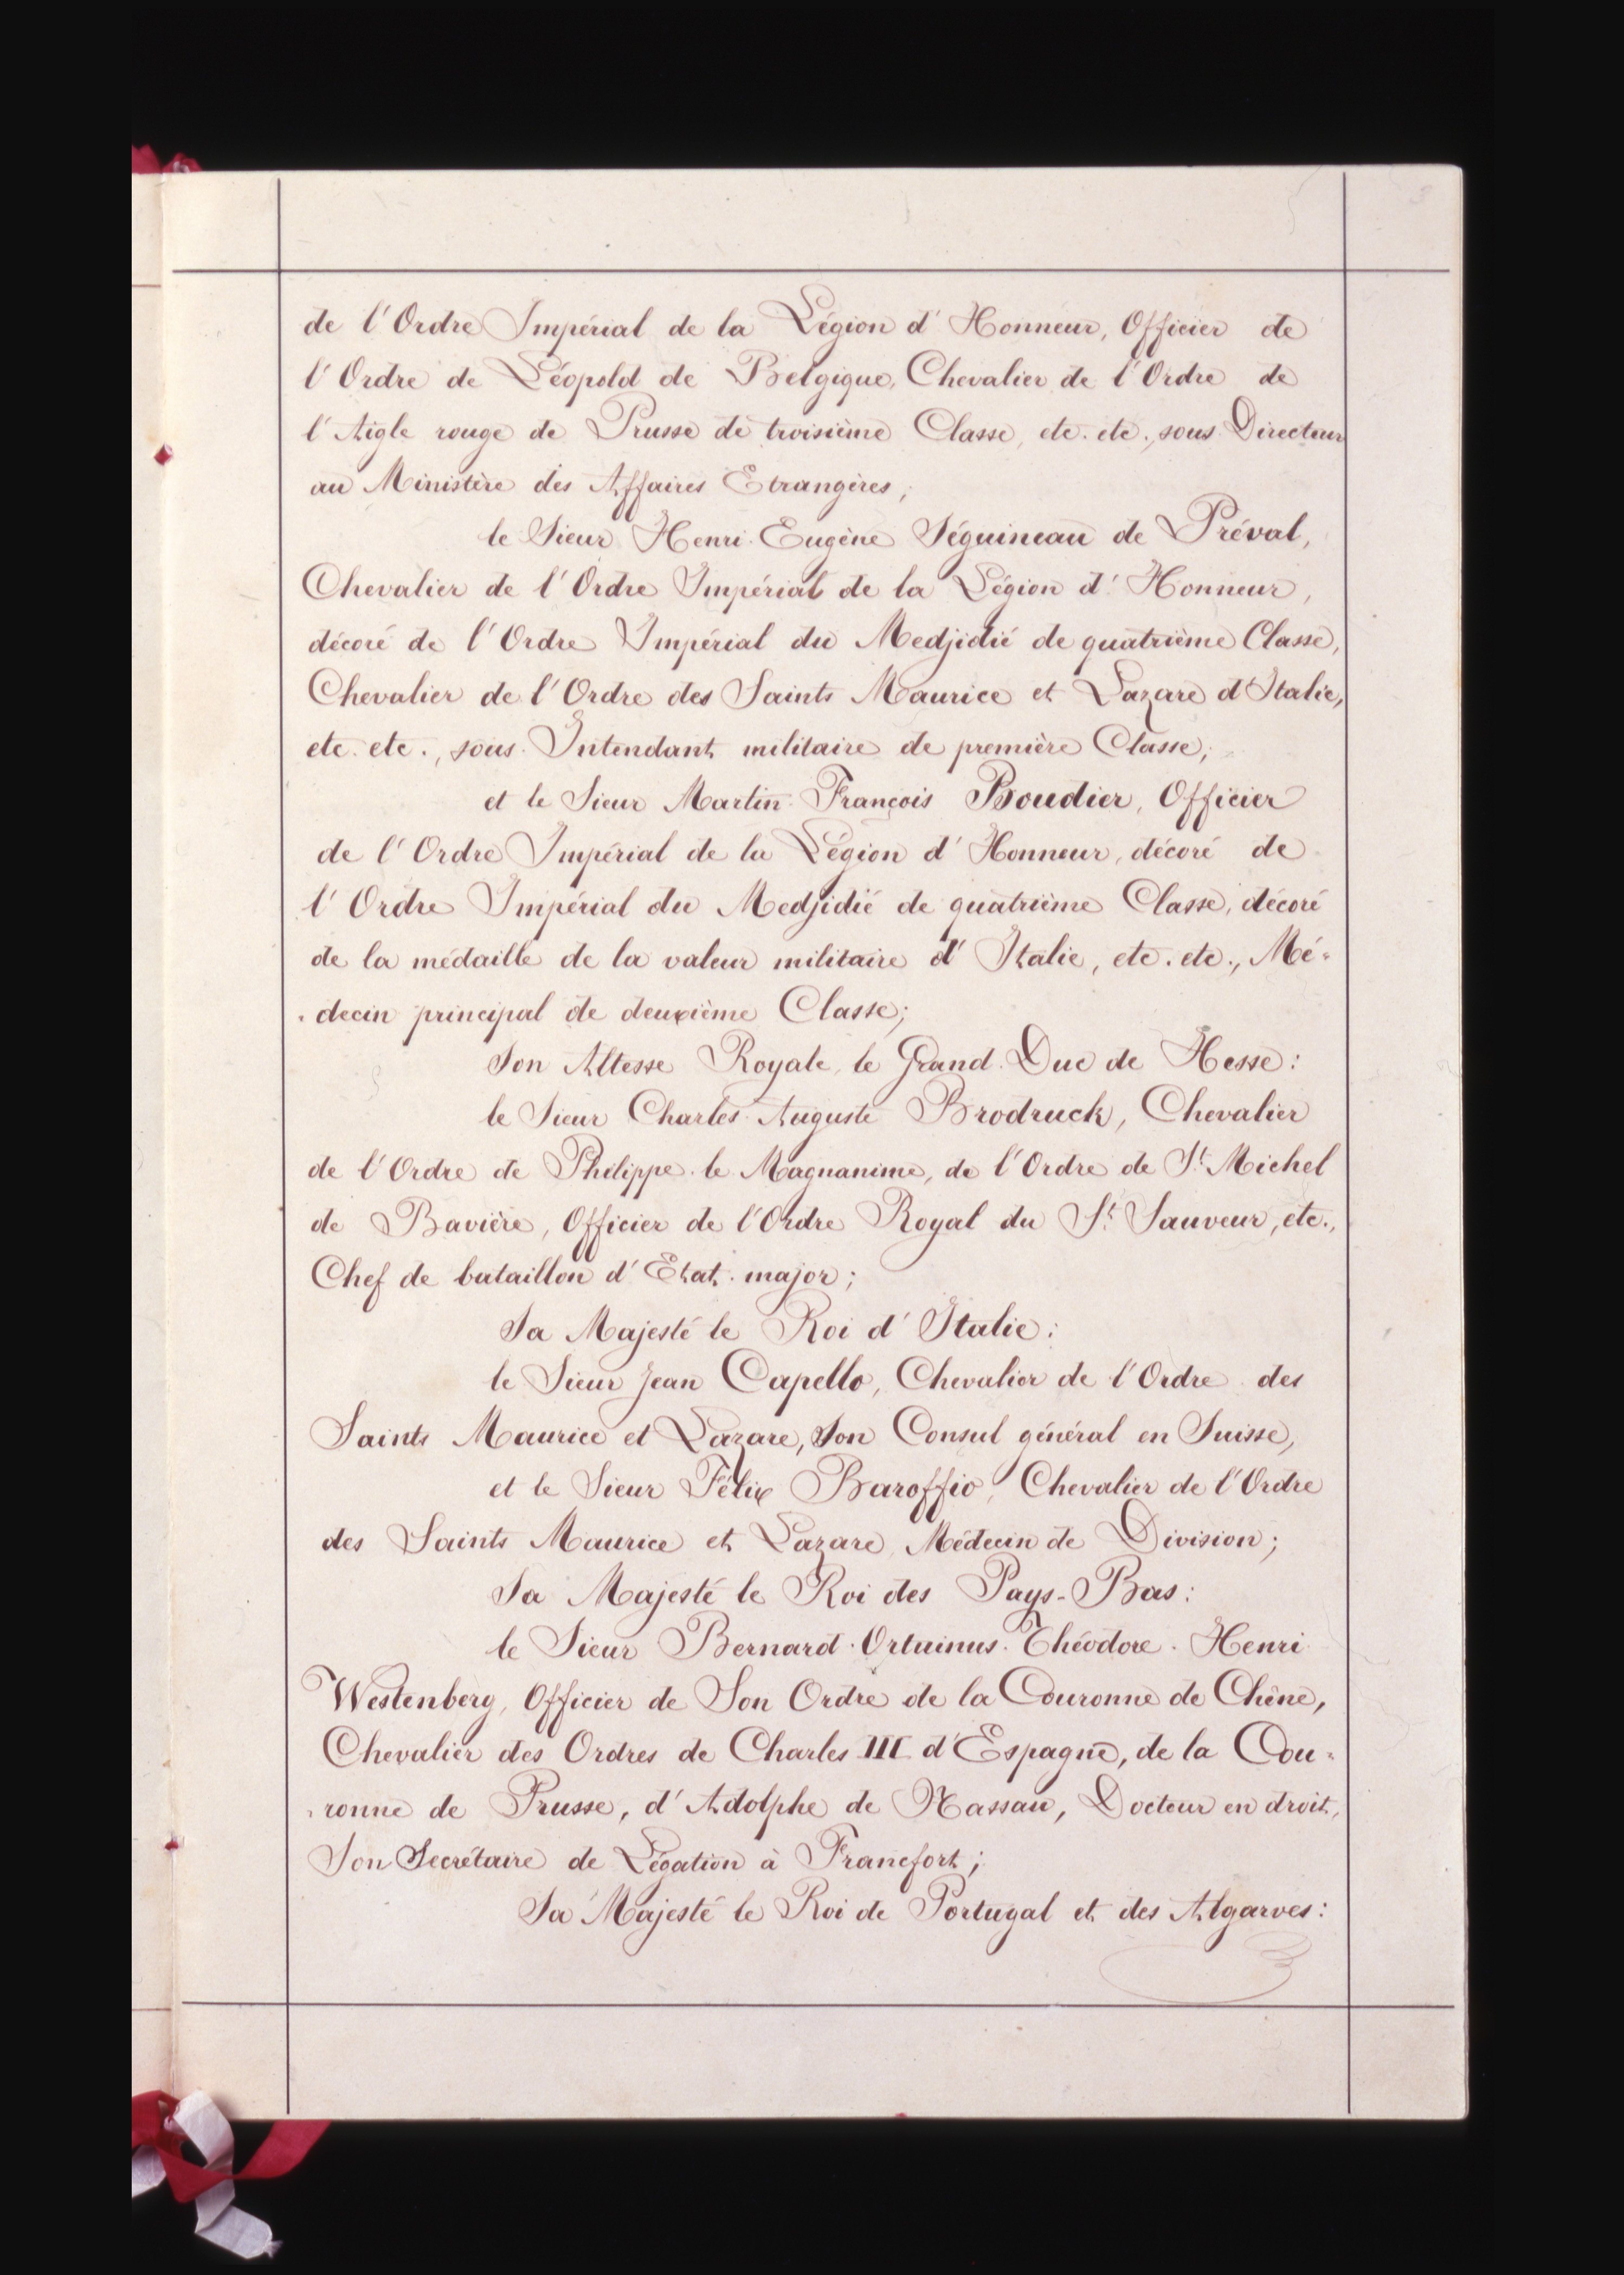 3
de l'Ordre Impérial de la Légion d'Honneur, Officier de
l'Ordre de Léopold de Belgique, Chevalier de l'Ordre de
l'Aigle rouge de Prusse de troisième Classe, etc. etc., sous-Directeur
au Ministère des Affaires Etrangères;
le Sieur Henri-Eugène Séguineau de Préval,
Chevalier de l'Ordre Impérial de la Légion d'Honneur,
décoré de l'Ordre Impérial du Medjidié de quatrième Classe,
Chevalier de l'Ordre des Saints Maurice et Lazare d'Italie,
etc. etc., sous-Intendant militaire de première Classe;
et le Sieur Martin-François Boudier, Officier
de l'Ordre Impérial de la Légion d'Honneur, décoré de
l'Ordre Impérial du Medjidié de quatrième Classe, décoré
de la médaille de la valeur militaire d'Italie, etc. etc., Mé-
-decin principal de deuxième Classe;
Son Altesse Royale le Grand-Duc de Hesse:
le Sieur Charles-Auguste Brodruck, Chevalier
de l'Ordre de Philippe-le-Magnanime, de l'Ordre de St. Michel
de Bavière, Officier de l'Ordre Royal du St. Sauveur, etc.,
Chef de bataillon d'Etat-major;
Sa Majesté le Roi d'Italie:
le Sieur Jean Capello, Chevalier de l'Ordre des
Saints Maurice et Lazare, Son Consul général en Suisse,
et le Sieur Félix Baroffio, Chevalier de l'Ordre
des Saints Maurice et Lazare, Médecin de Division;
Sa Majesté le Roi des Pays-Bas:
le Sieur Bernard-Ortuinus-Théodore-Henri
Westenberg, Officier de Son Ordre de la Couronne de Chêne,
Chevalier des Ordres de Charles III d'Espagne, de la Cou-
-ronne de Prusse, d'Adolphe de Nassau, Docteur en droit,
Son Secrétaire de Légation à Francfort;
Sa Majesté le Roi de Portugal et des Algarves: